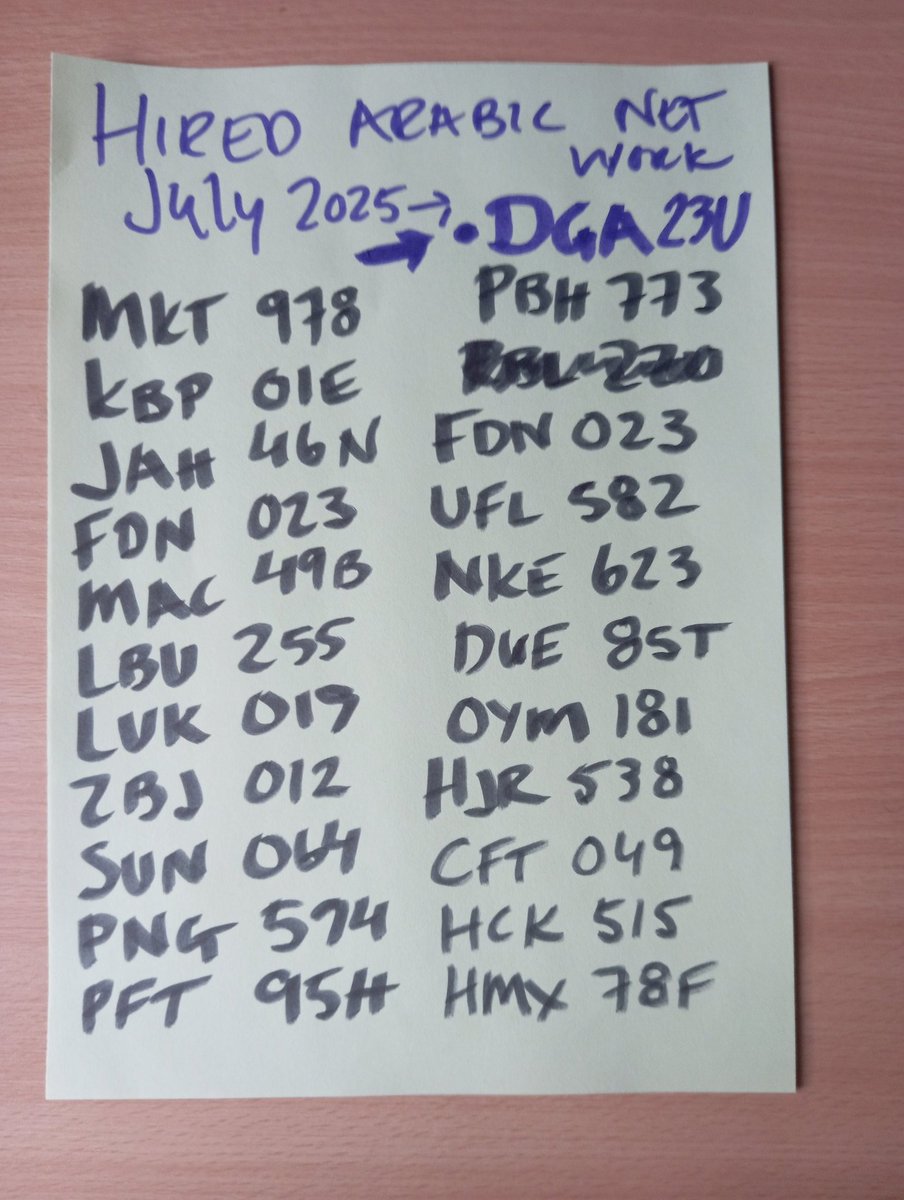 HIRED ARABIC NET
WORK
July 2025→
→ • DGA 23U
MKT 978
KBP 01E
JAH 46N
FDN 023
MAC 49B
LBU 255
LUK 019
ZBJ 012
SUN 064
PNG 574
PFT 95H
PBH 773
FDN 023
UFL 582
NKE 623
DUE 85T
OYM 181
HJR 538
CFT 049
HCK 515
HMX 78F